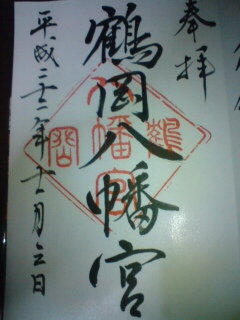 奉拝
鶴岡八幡宮
平成二十二年十一月三日
鶴
八幡宮
岡